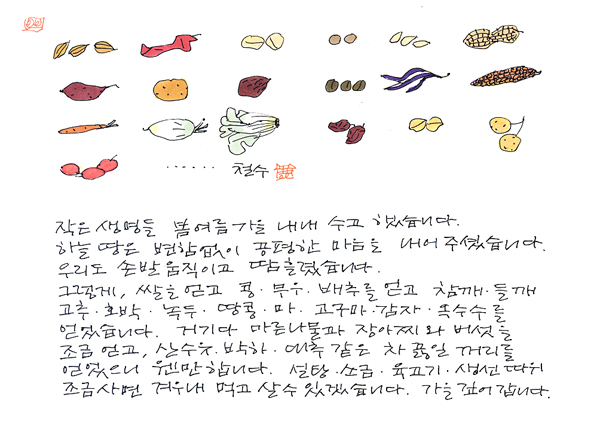 ...... 철수
작은 생명들 봄여름가을 내내 수고 했습니다.
하늘 땅은 변함없이 공평한 마음을 내어 주셨습니다.
우리도 손발 움직이고 땀흘렸습니다.
그렇게, 쌀을 얻고 콩·무우·배추를 얻고 참깨·들깨
고추·호박·녹두·땅콩·마·고구마·감자·옥수수를
얻었습니다. 거기다 마른나물과 장아찌와 버섯을
조금 얻고, 산수유·박하·대추 같은 차 끓일 꺼리를
얻었으니 웬만합니다. 설탕·소금·육고기·생선 따위
조금사면 겨우내 먹고 살수 있겠습니다. 가을 깊어 갑니다.